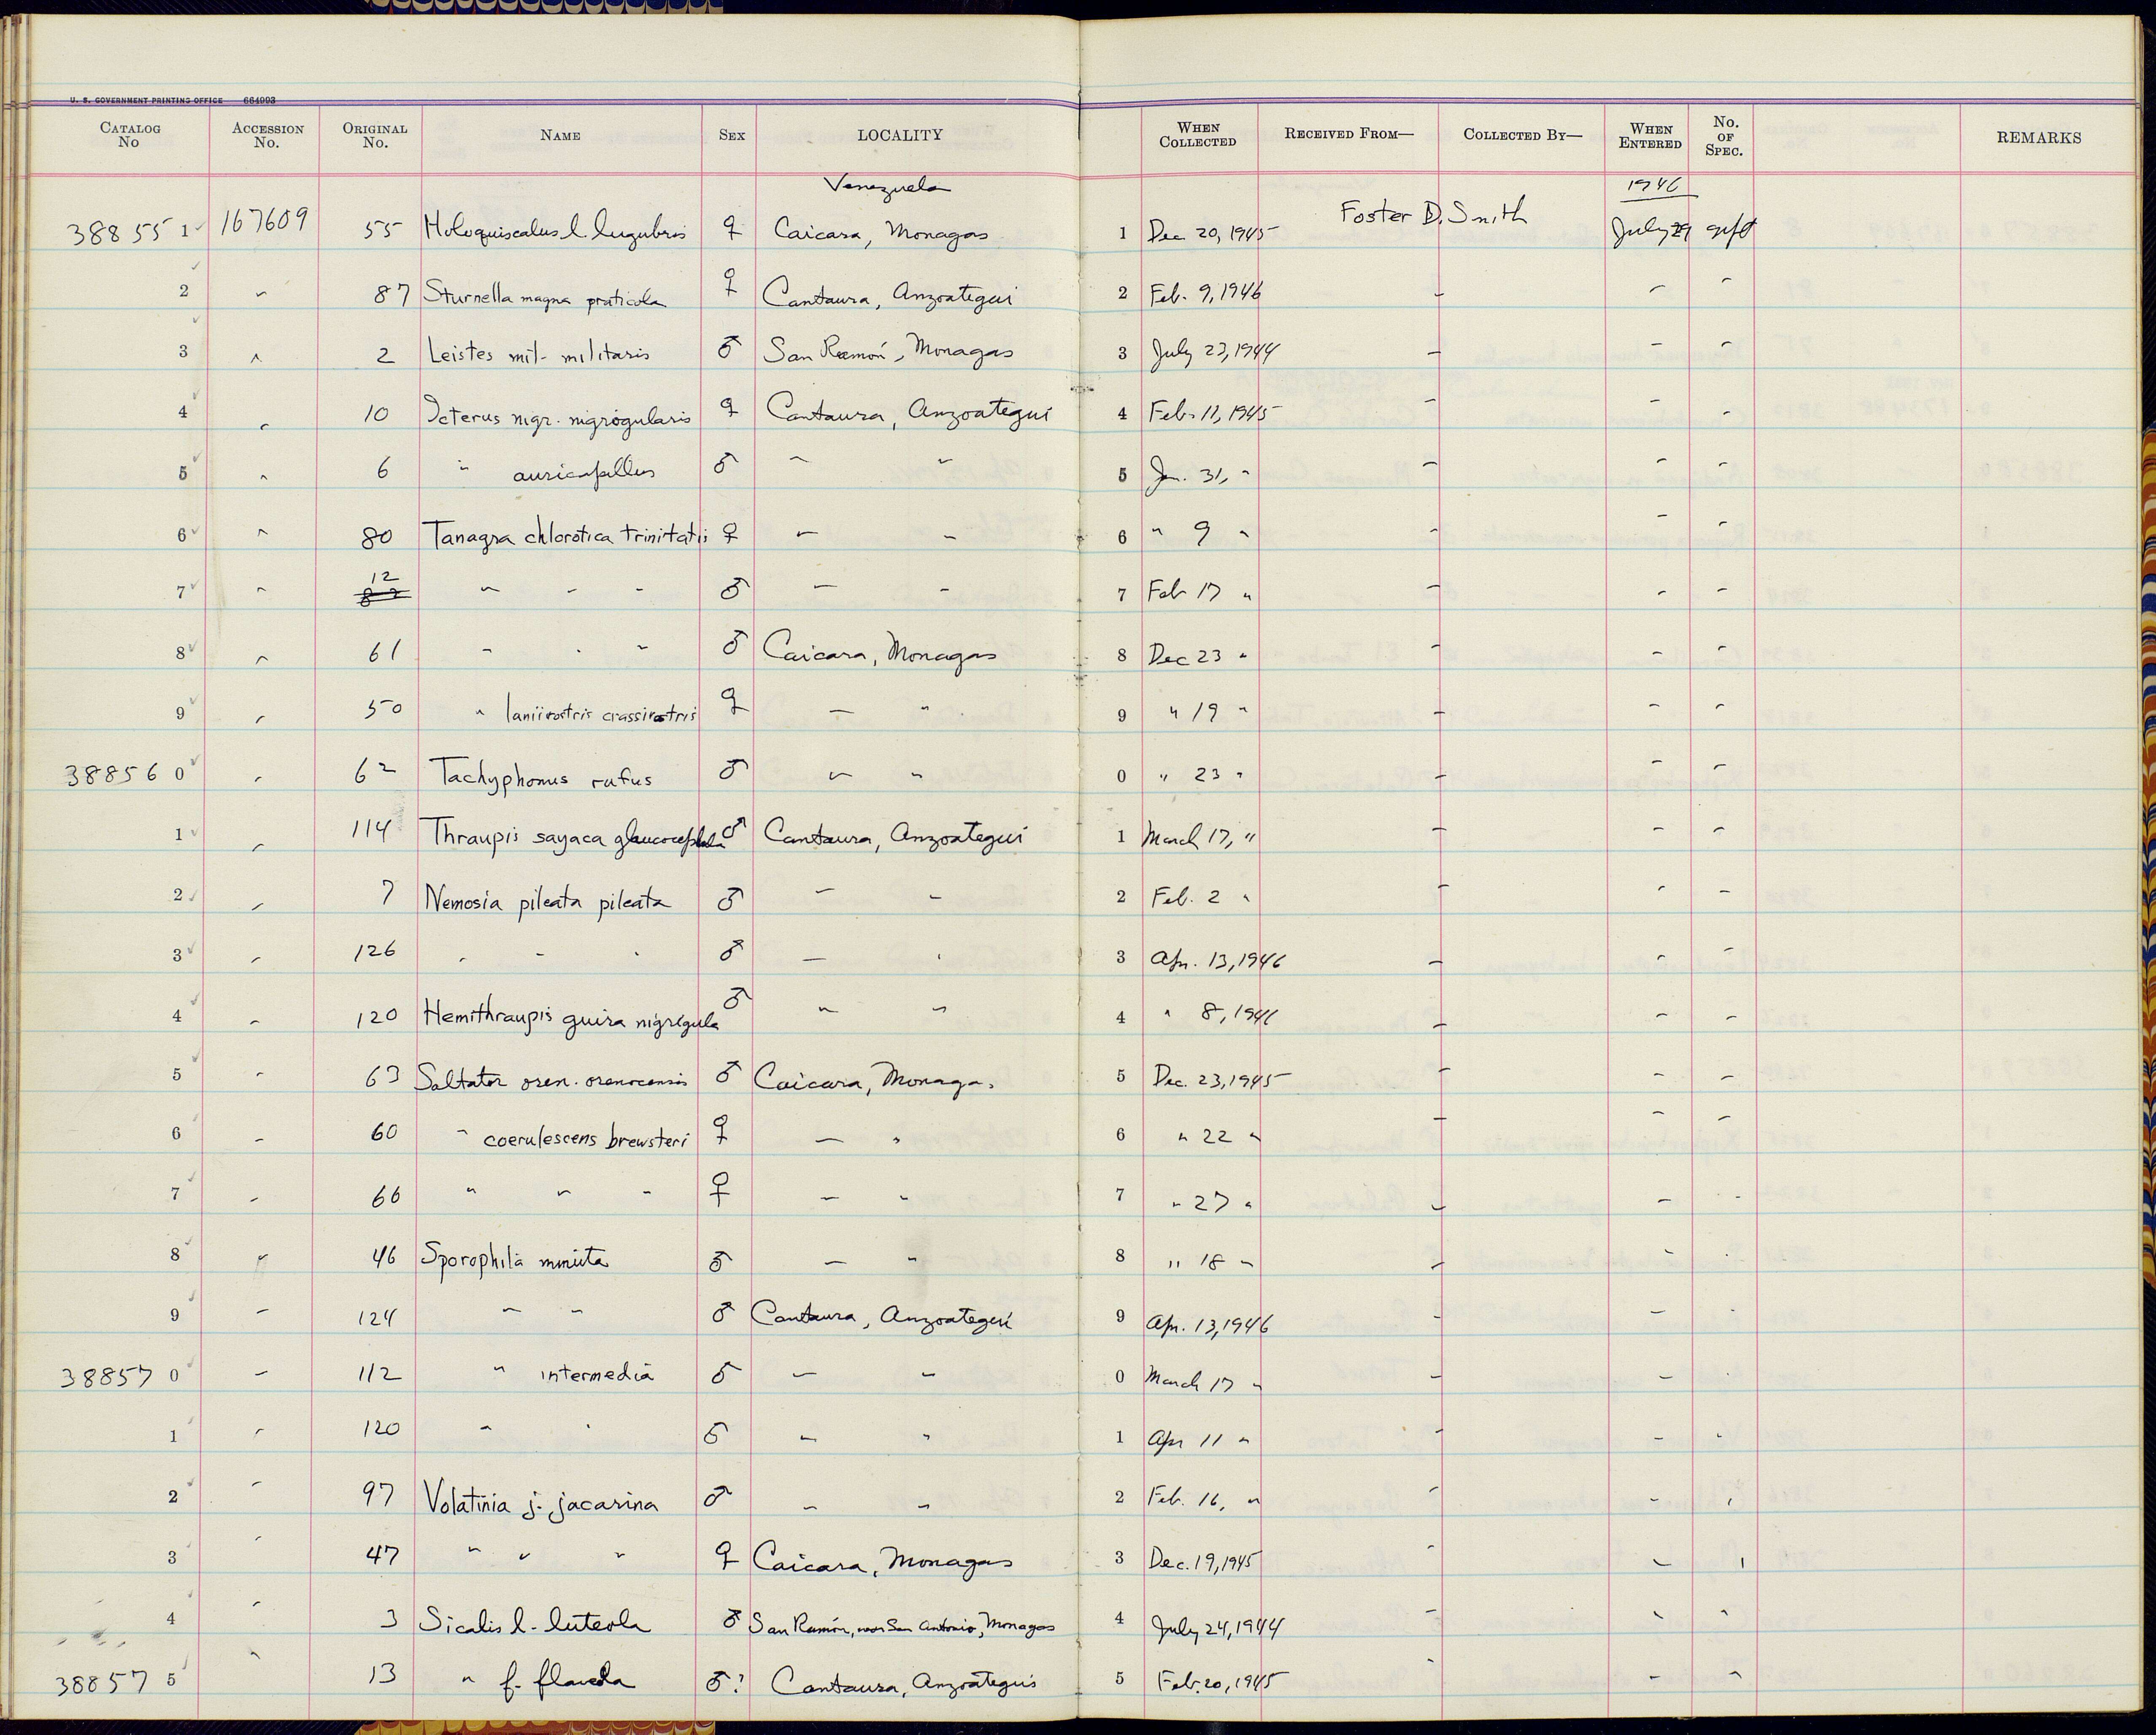 U. S. GOVERNMENT PRINTING OFFICE 664993
CATALOG No ACCESSION No. ORIGINAL No. NAME SEX LOCALITY WHEN COLLECTED RECEIVED FROM— COLLECTED BY— WHEN ENTERED No. OF SPEC. REMARKS
Venezuela 1946
388551 167609 55 Holoquiscalus l. lugubris ♀ Caicara, Monagas 1 Dec. 20, 1945 Foster D. Smith July 29 gift
2 " 87 Sturnella magna praticola ♀ Cantaura, Anzoategui 2 Feb. 9, 1946 " " "
3 " 2 Leistes mil- militaris ♂ San Ramón, Monagas 3 July 23, 1944 " " "
4 " 10 Icterus nigr. nigrogularis ♀ Cantaura, Anzoategui 4 Feb. 11, 1945 " " "
5 " 6 " auricapillus ♂ " " 5 Jan. 31, " " " "
6 " 80 Tanagra chlorotica trinitatis ♀ " " 6 " 9 " " " "
7 " 12 " " " ♂ " " 7 Feb 17 " " " "
8 " 61 " " " ♂ Caicara, Monagas 8 Dec 23 " " " "
9 " 50 " laniirostris crassirostris ♀ " " 9 " 19 " " " "
388560 " 62 Tachyphonus rufus ♂ " " 0 " 23 " " " "
1 " 114 Thraupis sayaca glaucocephala ♂ Cantaura, Anzoategui 1 March 17, " " " "
2 " 7 Nemosia pileata pileata ♂ " " 2 Feb. 2 " " " "
3 " 126 " " " ♂ " " 3 Apr. 13, 1946 " " "
4 " 120 Hemithraupis guira nigrigula ♂ " " 4 " 8, 1946 " " "
5 " 63 Saltator oren. orenocensis ♂ Caicara, Monagas 5 Dec. 23, 1945 " " "
6 " 60 " coerulescens brewsteri ♀ " " 6 " 22 " " " "
7 " 66 " " " ♀ " " 7 " 27 " " " "
8 " 46 Sporophila minuta ♂ " " 8 " 18 " " " "
9 " 124 " " ♂ Cantaura, Anzoategui 9 Apr. 13, 1946 " " "
388570 " 112 " intermedia ♂ " " 0 March 17 " " " "
1 " 120 " " ♂ " " 1 Apr 11 " " " "
2 " 97 Volatinia j. jacarina ♂ " " 2 Feb. 16, " " " "
3 " 47 " " " ♀ Caicara, Monagas 3 Dec. 19, 1945 " " "
4 " 3 Sicalis l. luteola ♂ San Ramón, near San Antonio, Monagas 4 July 24, 1944 " " "
388575 " 13 " f. flaveola ♂? Cantaura, Anzoategui 5 Feb. 20, 1945 " " "